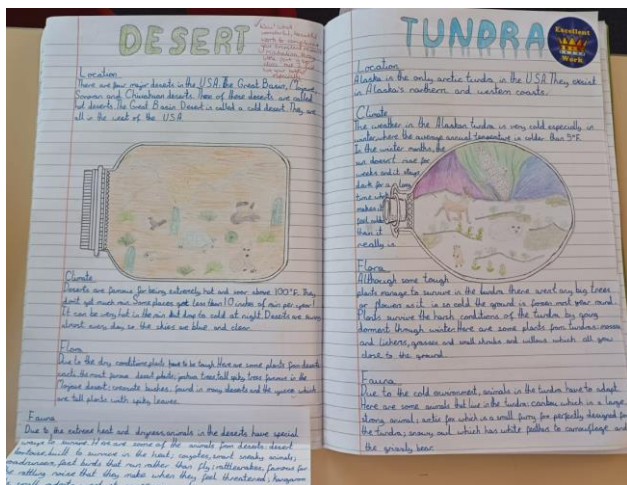 DESERT
Location
There are four major deserts in the USA. The Great Basin, Mojave,
Sonoran and Chihuahuan deserts. Three of those deserts are called
hot deserts. The Great Basin Desert is called a cold desert. They are
all in the west of the USA.
Climate
Deserts are famous for being extremely hot and soar above 100°F. They
don't get much rain. Some places get less than 10 inches of rain per year!
It can be very hot in the day but cold at night. Deserts are sunny
almost every day so the skies are blue and clear.
Flora
Due to the dry conditions, plants have to be tough. Here are some plants from deserts:
cacti, the most famous desert plant; joshua trees, tall spiky trees famous in the
Mojave desert; creosote bushes, found in many deserts and the yucca which
are tall plants with spiky leaves.
Fauna
Due to the extreme heat and dryness, animals in the deserts have special
ways to survive. Here are some of the animals from deserts: desert
tortoise, built to survive in the heat; coyotes, smart sneaky animals;
roadrunners, fast birds that run rather than fly; rattlesnakes, famous for
the rattling noise that they make when they feel threatened; kangaroo
TUNDRA
Excellent
Work
Location
Alaska is the only arctic tundra in the USA. They exist
in Alaska's northern and western coasts.
Climate
The weather in the Alaskan tundra is very cold especially in
winter where the average annual temperature is colder than 5°F.
In the winter months, the
sun doesn't rise for
weeks and it stays
dark for a long
time which
makes it
feel colder
than it
really is.
Flora
Although some tough
plants manage to survive in the tundra there aren't any big trees
or flowers as it is so cold the ground is frozen most year round.
Plants survive the harsh conditions of the tundra by going
dormant through winter. Here are some plants from tundra: mosses
and lichens, grasses and small shrubs and willows which all grow
close to the ground.
Fauna
Due to the cold environment, animals in the tundra have to adapt.
Here are some animals that live in the tundra: caribou which is a large,
strong animal; arctic fox which is a small furry fox perfectly designed for
the tundra; snowy owl which has white feathers to camouflage and
the grizzly bear.